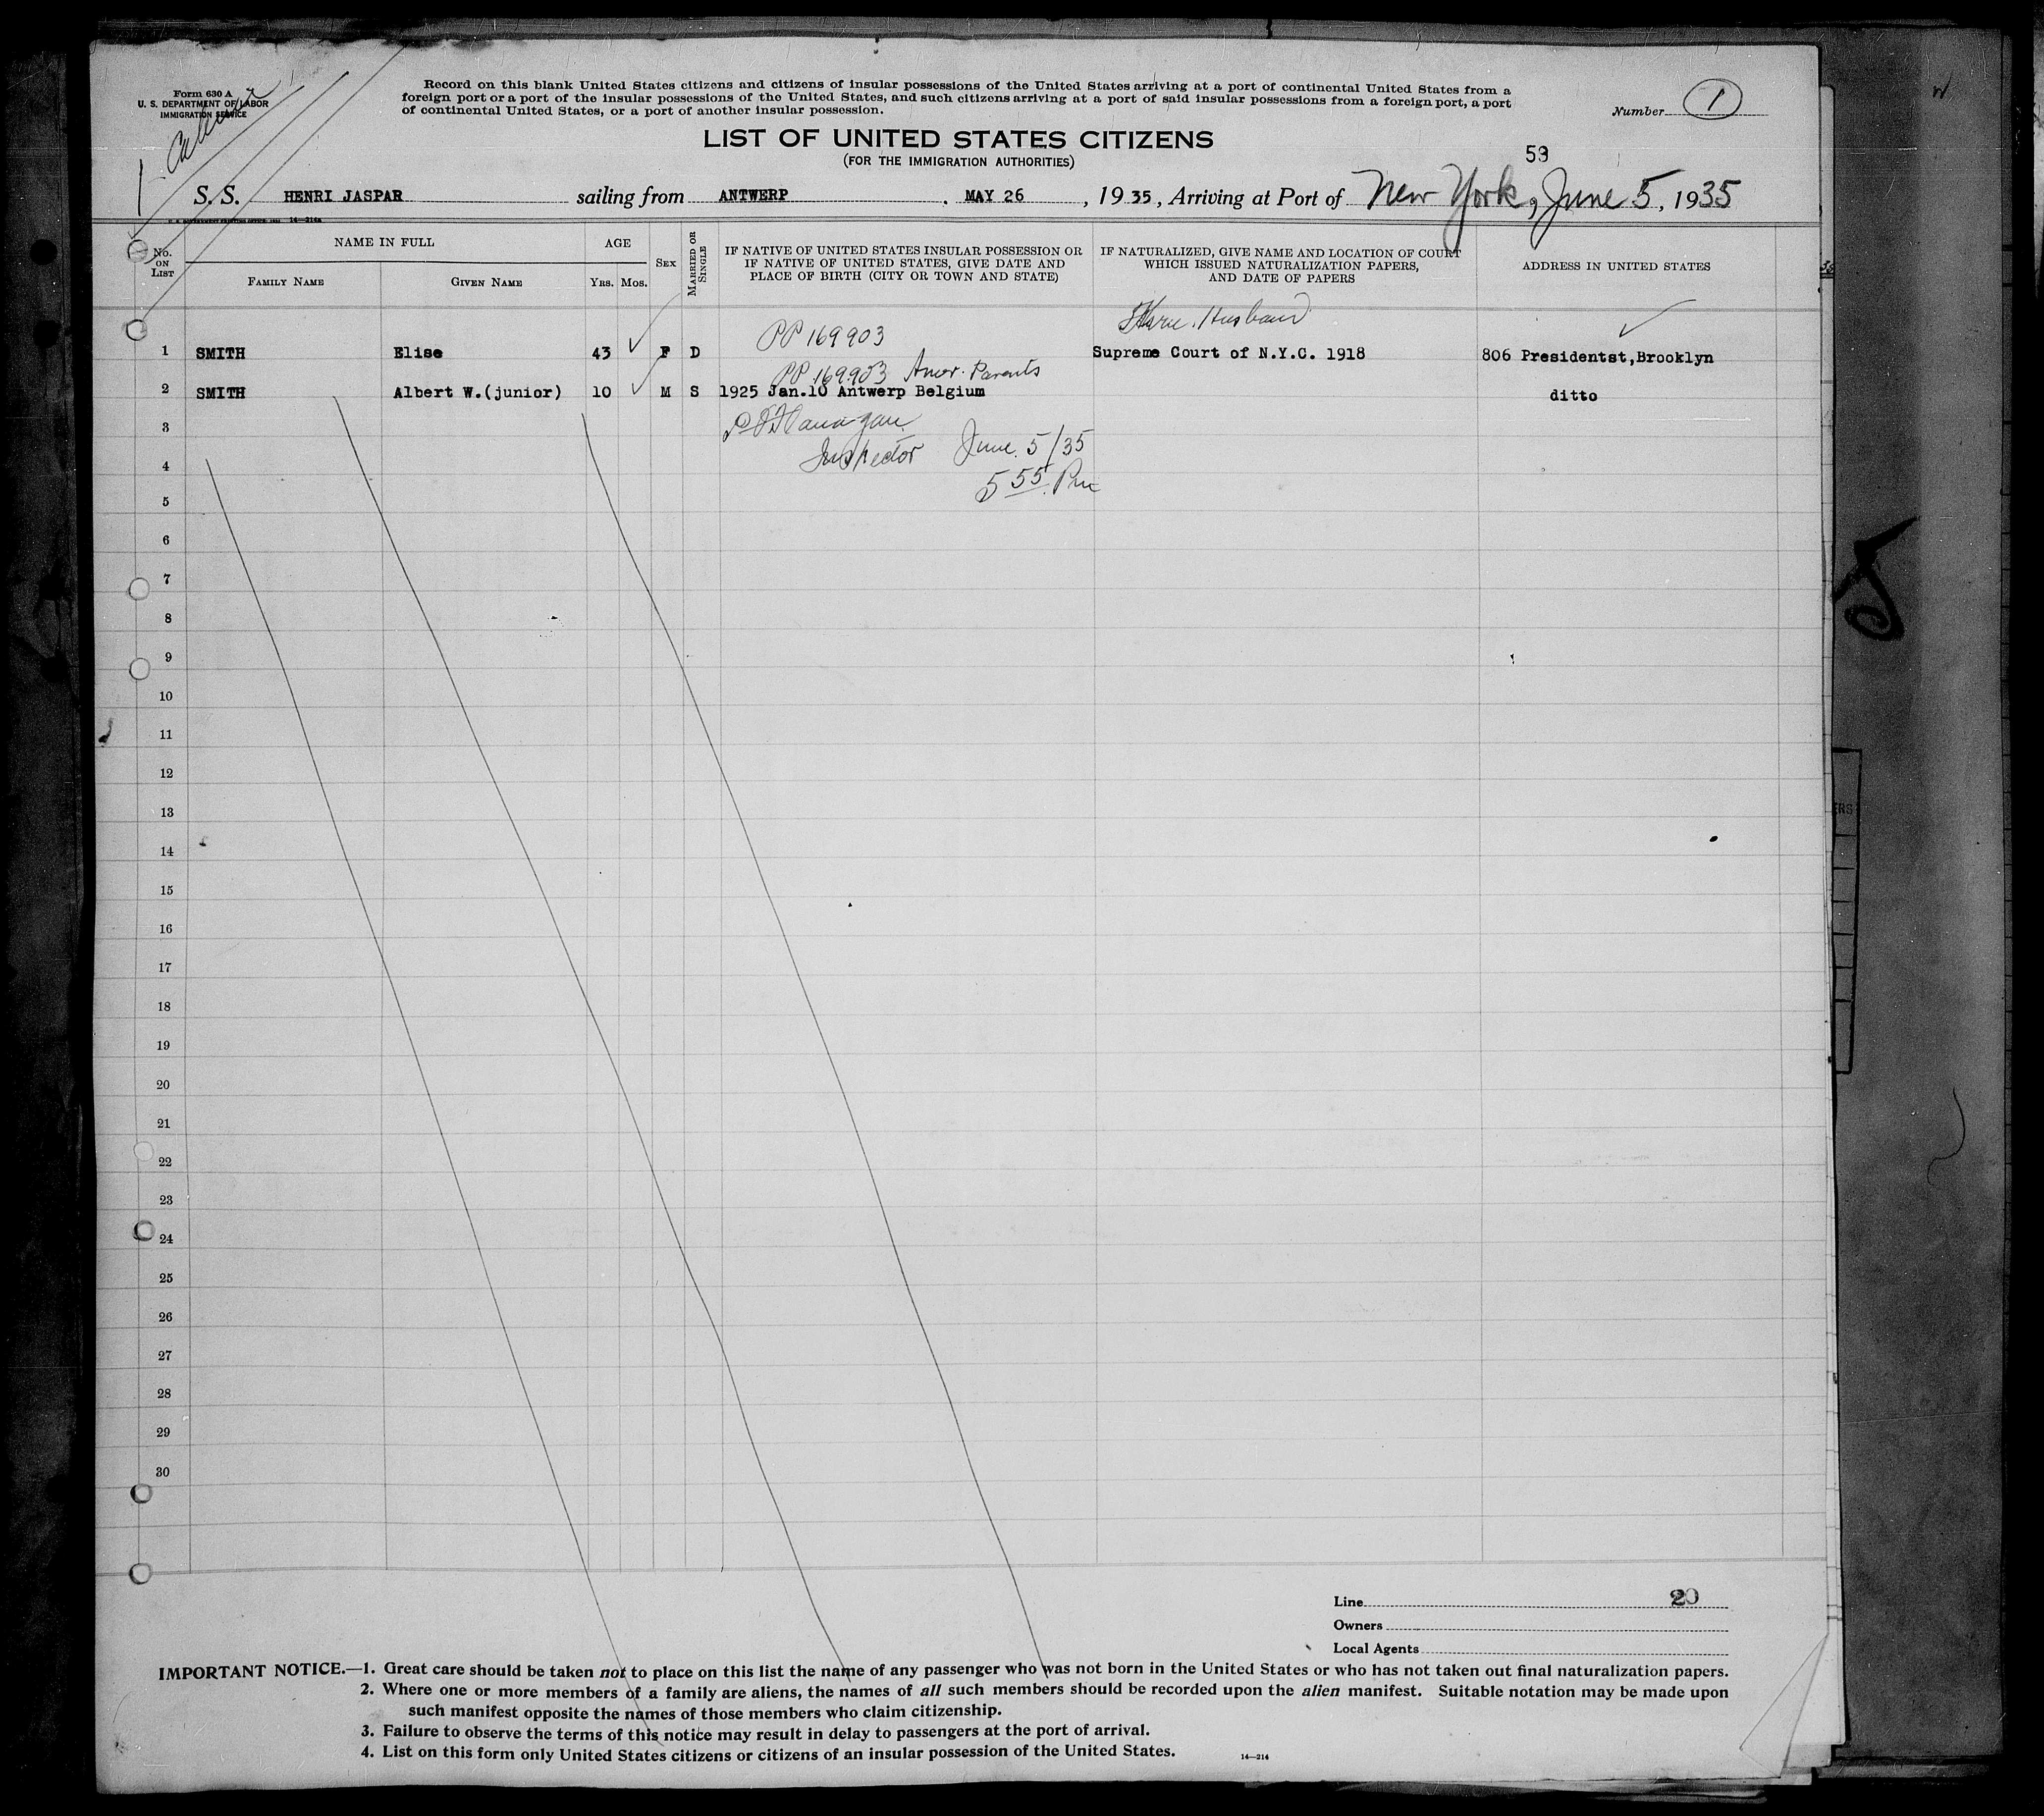 Form 630 A
U. S. DEPARTMENT OF LABOR
IMMIGRATION SERVICE
1 Cabin
Record on this blank United States citizens and citizens of insular possessions of the United States arriving at a port of continental United States from a
foreign port or a port of the insular possessions of the United States, and such citizens arriving at a port of said insular possessions from a foreign port, a port
of continental United States, or a port of another insular possession.
Number 1
LIST OF UNITED STATES CITIZENS
(FOR THE IMMIGRATION AUTHORITIES)
53
S. S. HENRI JASPAR sailing from ANTWERP . MAY 26 , 1935, Arriving at Port of New York, June 5, 1935
14—214a
No. ON LIST
NAME IN FULL
FAMILY NAME
GIVEN NAME
AGE
YRS. MOS.
SEX
MARRIED OR SINGLE
IF NATIVE OF UNITED STATES INSULAR POSSESSION OR
IF NATIVE OF UNITED STATES, GIVE DATE AND
PLACE OF BIRTH (CITY OR TOWN AND STATE)
IF NATURALIZED, GIVE NAME AND LOCATION OF COURT
WHICH ISSUED NATURALIZATION PAPERS,
AND DATE OF PAPERS
ADDRESS IN UNITED STATES
PP 169903 Husband
1 SMITH Elise 43 F D Supreme Court of N.Y.C. 1918 806 Presidentst,Brooklyn
PP 169.903 Amer. Parents
2 SMITH Albert W.(junior) 10 M S 1925 Jan.10 Antwerp Belgium ditto
3 Flanagan
4 Inspector June 5/35
5 5 55 Pm
6
7
8
9
10
11
12
13
14
15
16
17
18
19
20
21
22
23
24
25
26
27
28
29
30
Line 20
Owners
Local Agents
IMPORTANT NOTICE.—1. Great care should be taken not to place on this list the name of any passenger who was not born in the United States or who has not taken out final naturalization papers.
2. Where one or more members of a family are aliens, the names of all such members should be recorded upon the alien manifest. Suitable notation may be made upon
such manifest opposite the names of those members who claim citizenship.
3. Failure to observe the terms of this notice may result in delay to passengers at the port of arrival.
4. List on this form only United States citizens or citizens of an insular possession of the United States.
14—214